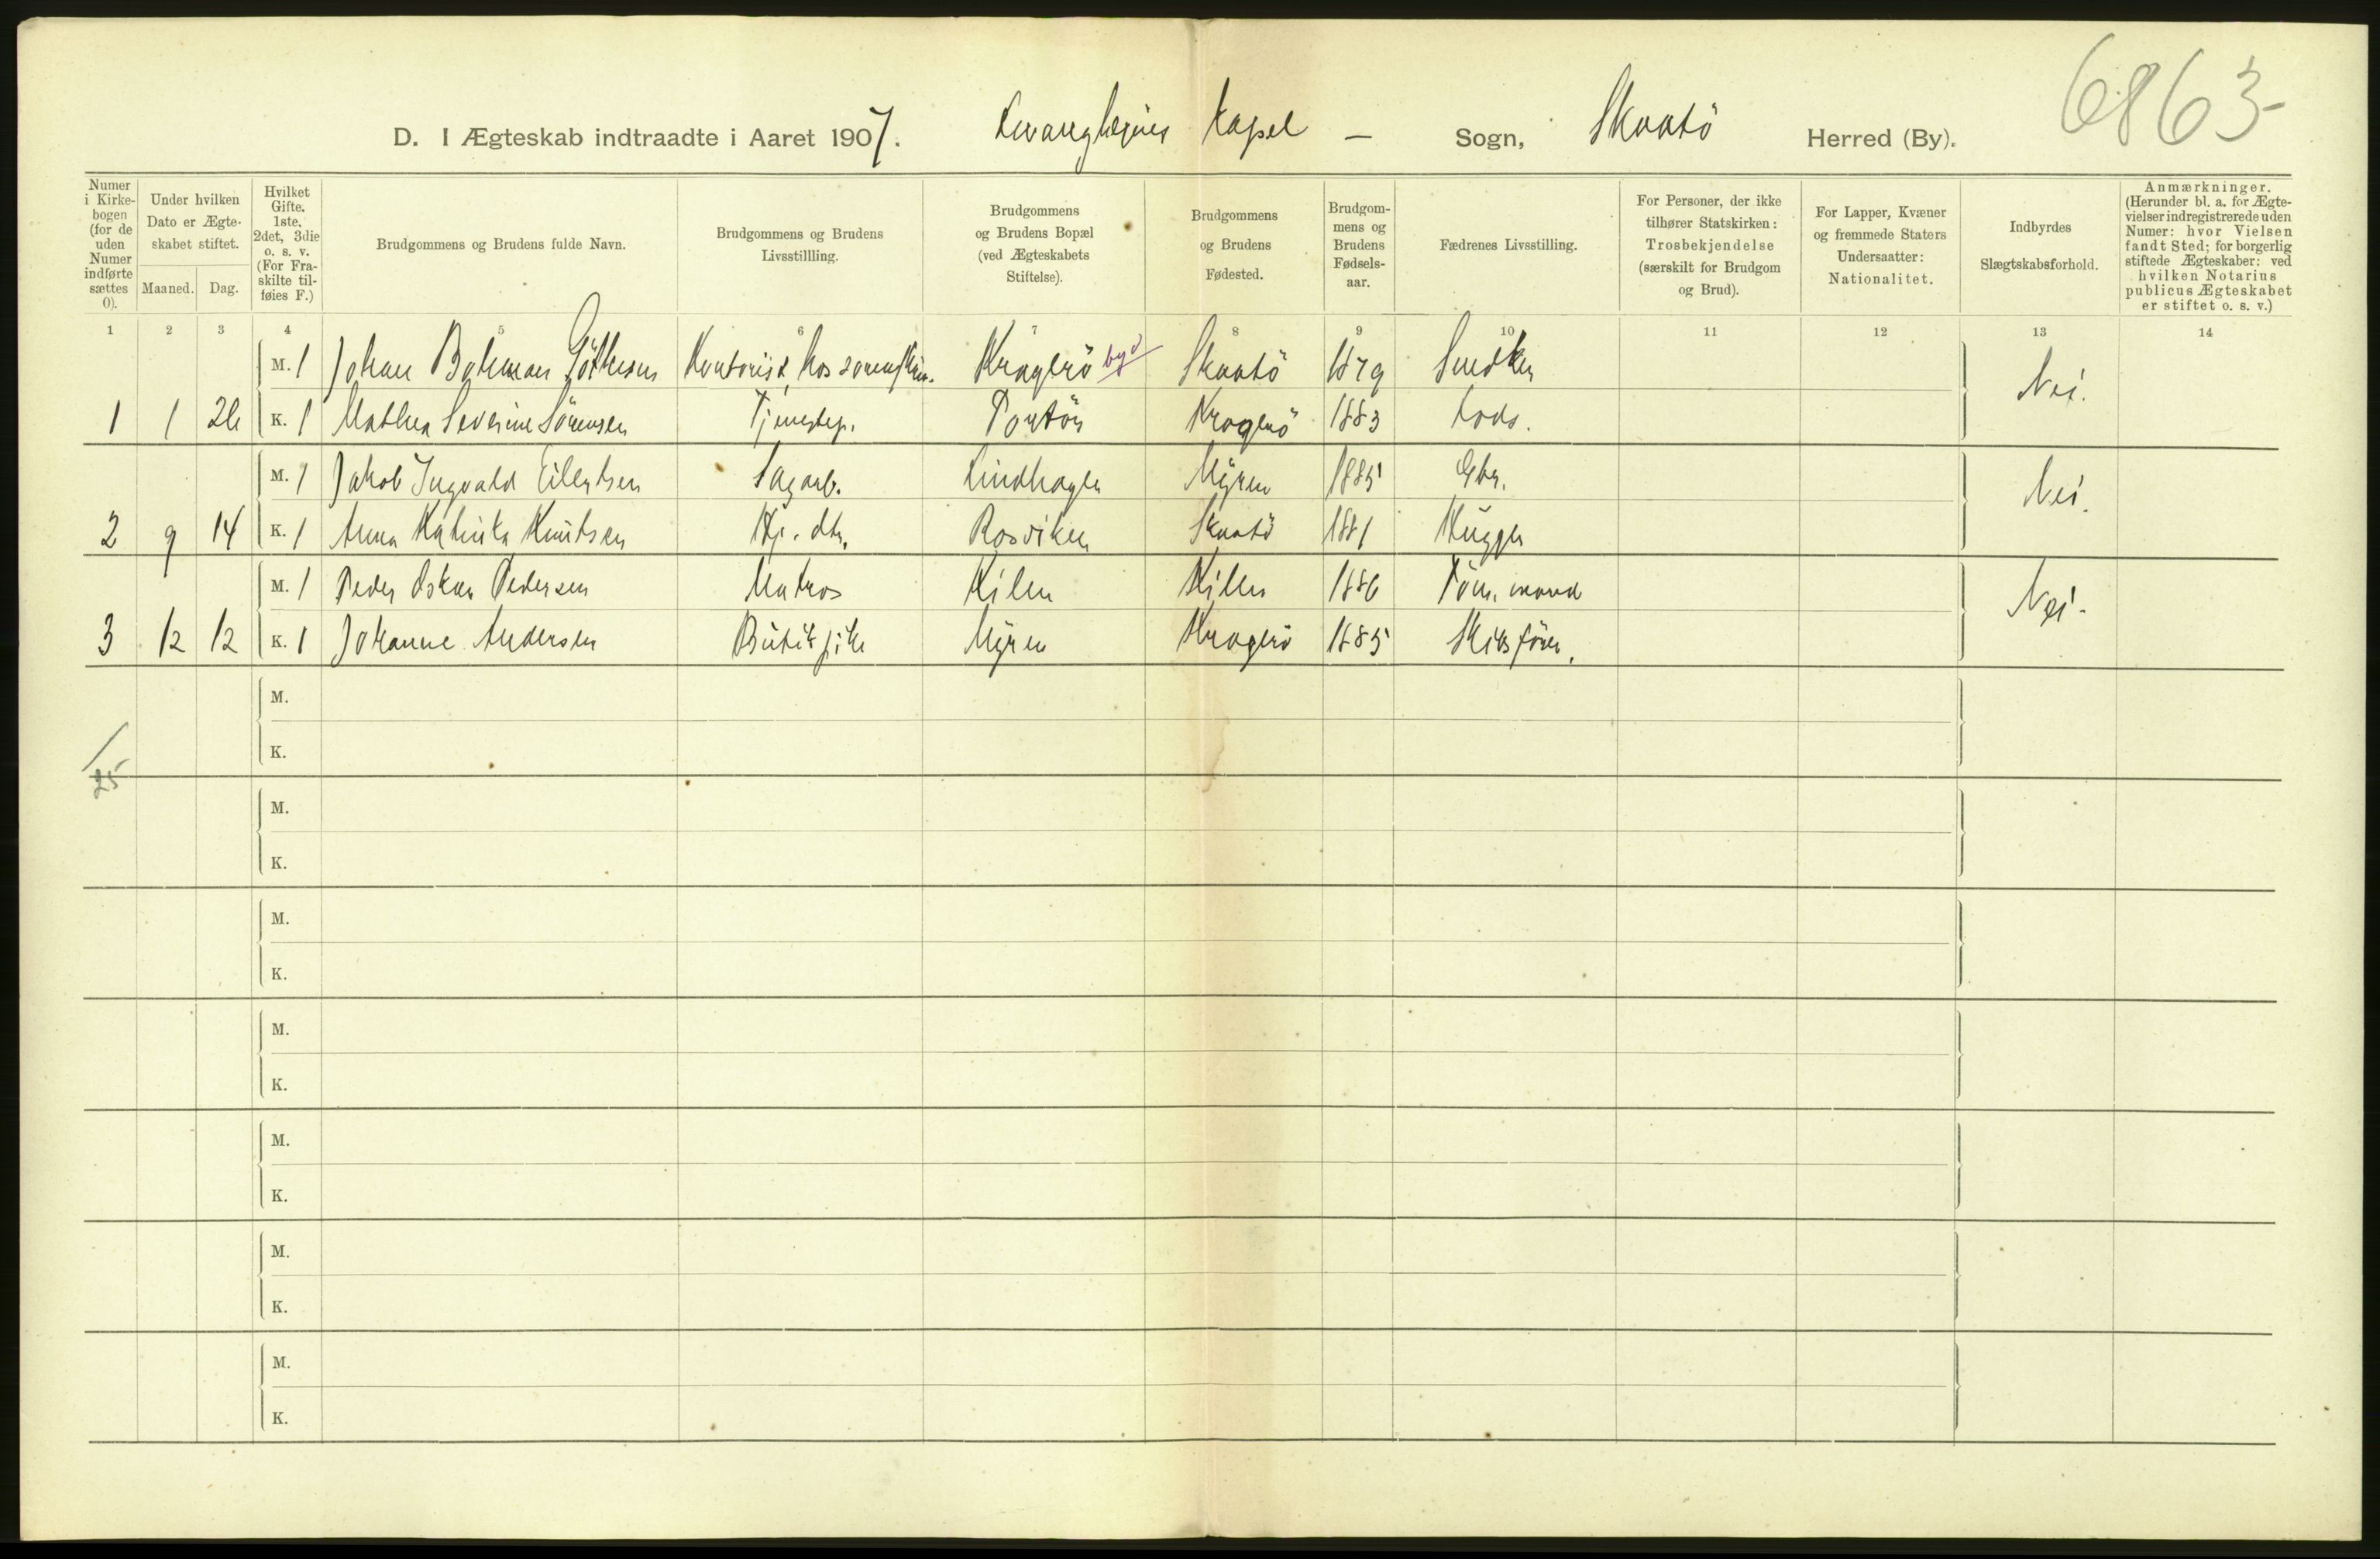 6863
D. I Ægteskab indtraadte i Aaret 1907. Kapel — Sogn, Skaatö Herred (By).
Numer i Kirke-bogen (for de uden Numer indførte sættes 0).
Under hvilken Dato er Ægte-skabet stiftet.
Maaned. Dag.
Hvilket Gifte. 1ste, 2det, 3die o. s. v. (For Fra-skilte til-føies F.)
Brudgommens og Brudens fulde Navn.
Brudgommens og Brudens Livsstillling.
Brudgommens og Brudens Bopæl (ved Ægteskabets Stiftelse).
Brudgommens og Brudens Fødested.
Brudgom-mens og Brudens Fødsels-aar.
Fædrenes Livsstilling.
For Personer, der ikke tilhører Statskirken: Trosbekjendelse (særskilt for Brudgom og Brud).
For Lapper, Kvæner og fremmede Staters Undersaatter: Nationalitet.
Indbyrdes Slægtskabsforhold.
Anmærkninger. (Herunder bl. a. for Ægte-vielser indregistrerede uden Numer: hvor Vielsen fandt Sted; for borgerlig stiftede Ægteskaber: ved hvilken Notarius publicus Ægteskabet er stiftet o. s. v.)
1 2 3 4 5 6 7 8 9 10 11 12 13 14
M. 1 Johan Kontorist hos Kragerö by Skaatö 1879 Snedker Nei.
1 1 26 K. 1 Mathea Severine Sörensen Tjenestep. Portör Kragerö 1883 Lods.
M. 1 Jakob Ingvald Eilertsen Sagarb. Lindhagen Myren 1885 Gbr. Nei.
2 9 14 K. 1 Anna Katinka Knutsen Hj. dtr. Rosviken Skaatö 1881 Hugger
M. 1 Peder Oskar Pedersen Matros Kilen Kilen 1886 Töm. mand Nei.
3 12 12 K. 1 Johanne Andersen Butikpike Myren Kragerö 1885 Skibsförer.
M.
K.
25
M.
K.
M.
K.
M.
K.
M.
K.
M.
K.
M.
K.